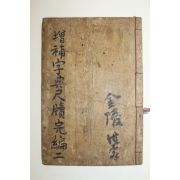 增補字典尺牘完編 二
金陵